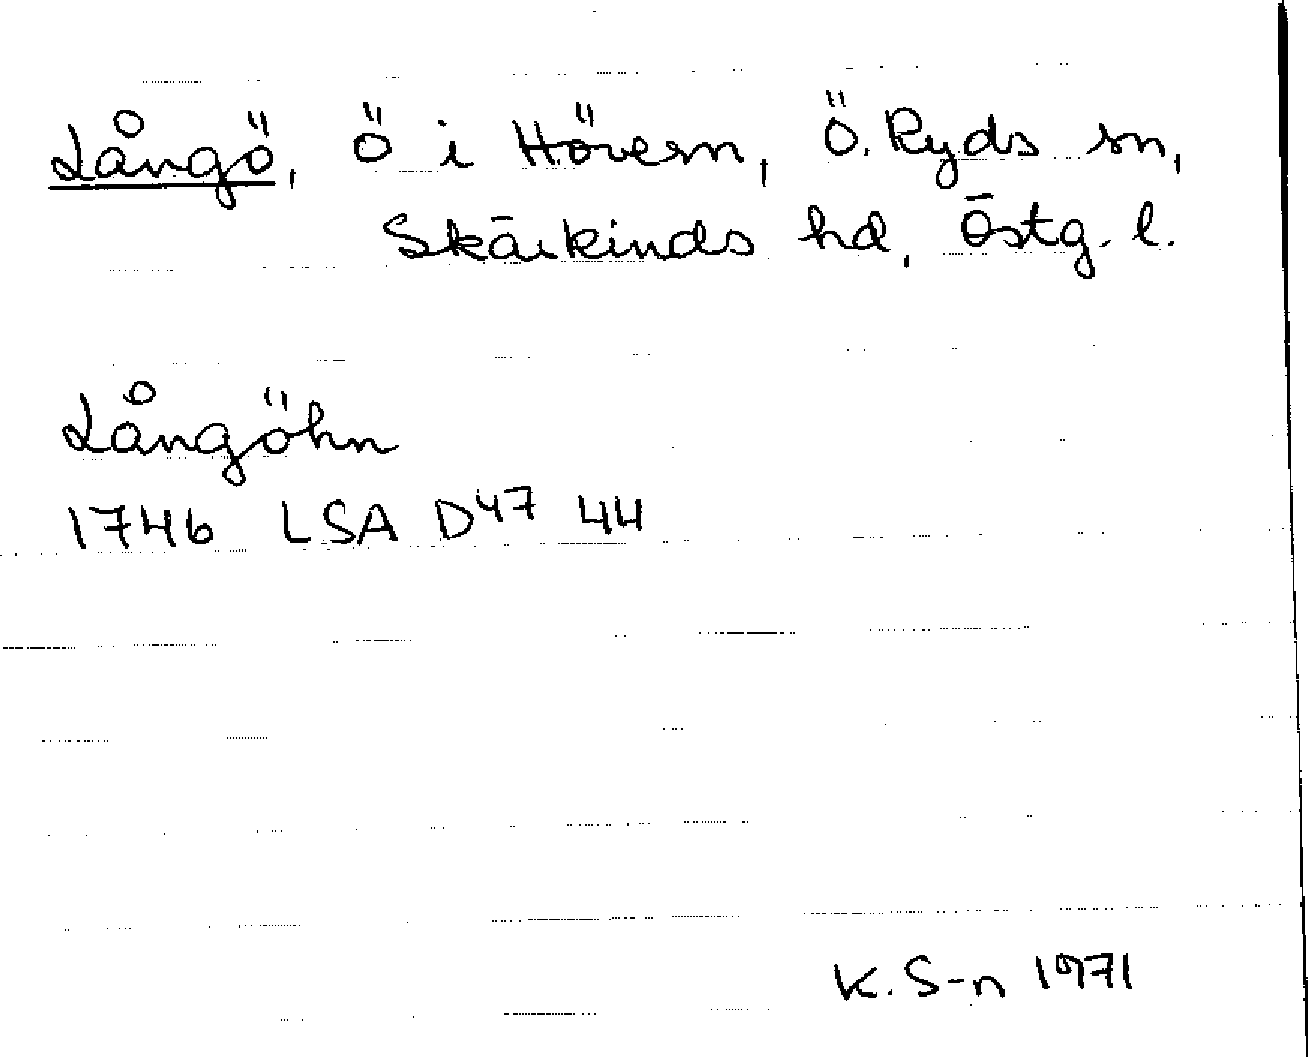 Långö, ö i Hövern, Ö. Ryds sn,
Skärkinds hd, Östg. l.
Långöhn
1746 LSA D47 44
K. S-n 1971